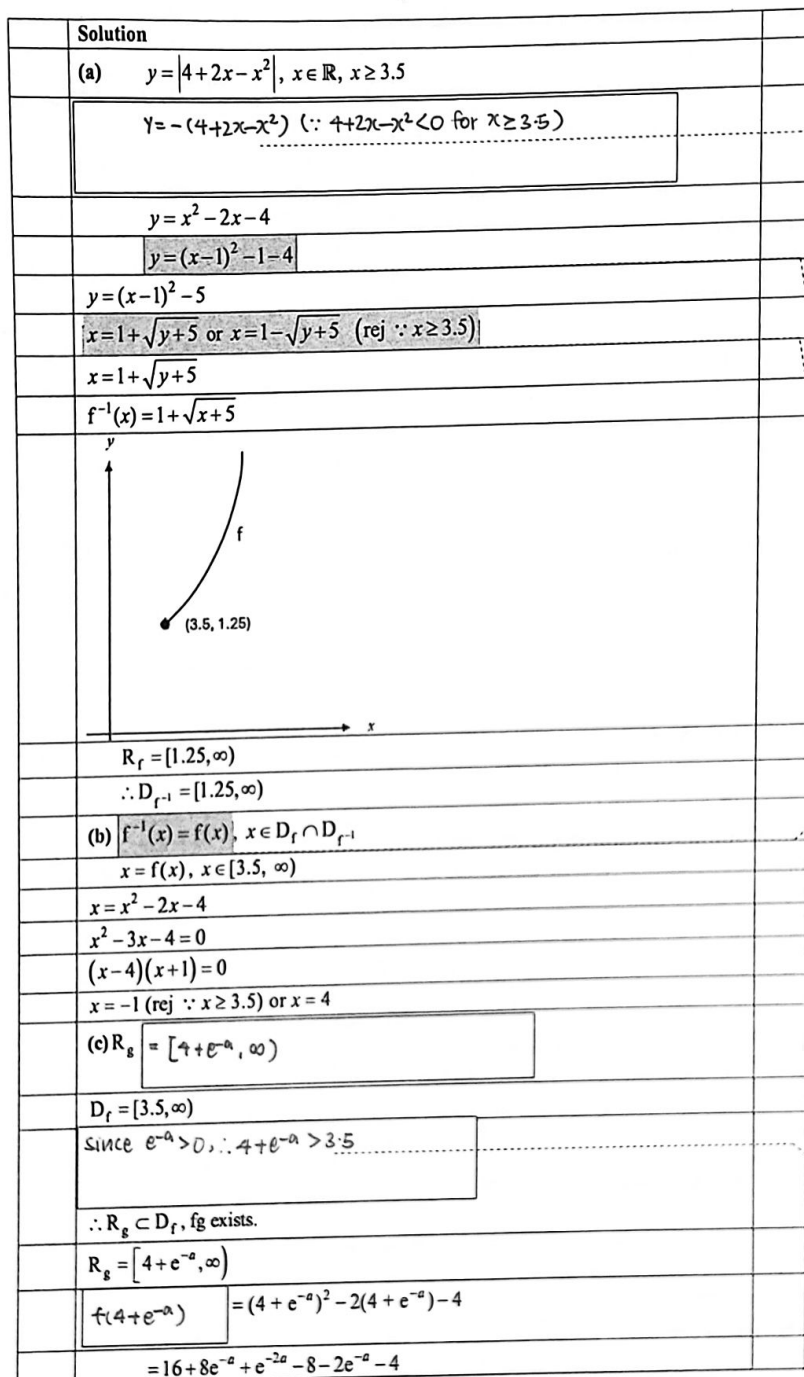 Solution
(a) y = |4+2x−x²|, x∈ℝ, x≥3.5
Y = −(4+2x−x²) (∵ 4+2x−x²<0 for x≥3.5)
y = x²−2x−4
y = (x−1)²−1−4
y = (x−1)²−5
x = 1+√(y+5) or x = 1−√(y+5) (rej ∵ x≥3.5)
x = 1+√(y+5)
f⁻¹(x) = 1+√(x+5)
y
f
(3.5, 1.25)
x
R_f = [1.25,∞)
∴ D_f⁻¹ = [1.25,∞)
(b) f⁻¹(x) = f(x), x∈D_f ∩ D_f⁻¹
x = f(x), x∈[3.5, ∞)
x = x²−2x−4
x²−3x−4 = 0
(x−4)(x+1) = 0
x = −1 (rej ∵ x≥3.5) or x = 4
(c) R_g = [4+e^(−a), ∞)
D_f = [3.5,∞)
since e^(−a)>0, ∴ 4+e^(−a) >3.5
∴ R_g ⊂ D_f, fg exists.
R_g = [4+e^(−a),∞)
f(4+e^(−a)) = (4+e^(−a))²−2(4+e^(−a))−4
= 16+8e^(−a)+e^(−2a)−8−2e^(−a)−4